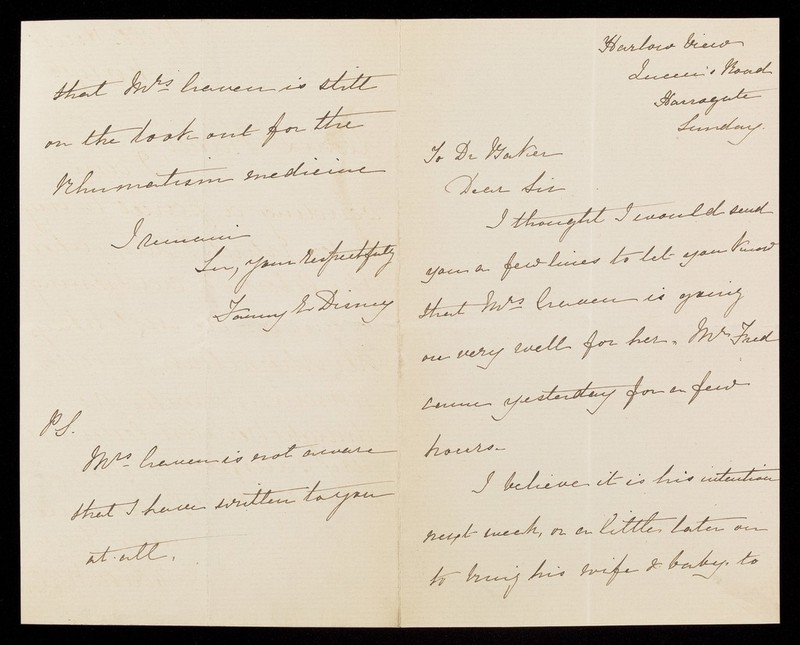 Harlow View
Queen's Road
Harrogate
Sunday.
To Dr Baker
Dear Sir
I thought I would send
you a few lines to let you know
that Mrs Craven is going
on very well for her. Mr Fred
came yesterday for a few
hours.
I believe it is his intention
next week, or a little later on
to bring his wife & baby. to
that Mrs Craven is still
on the look out for the
Rhumatism medicine
I remain
Sir, your respectfully
Fanny E Disney
P.S.
Mrs Craven is not aware
that I have written to you
at all.